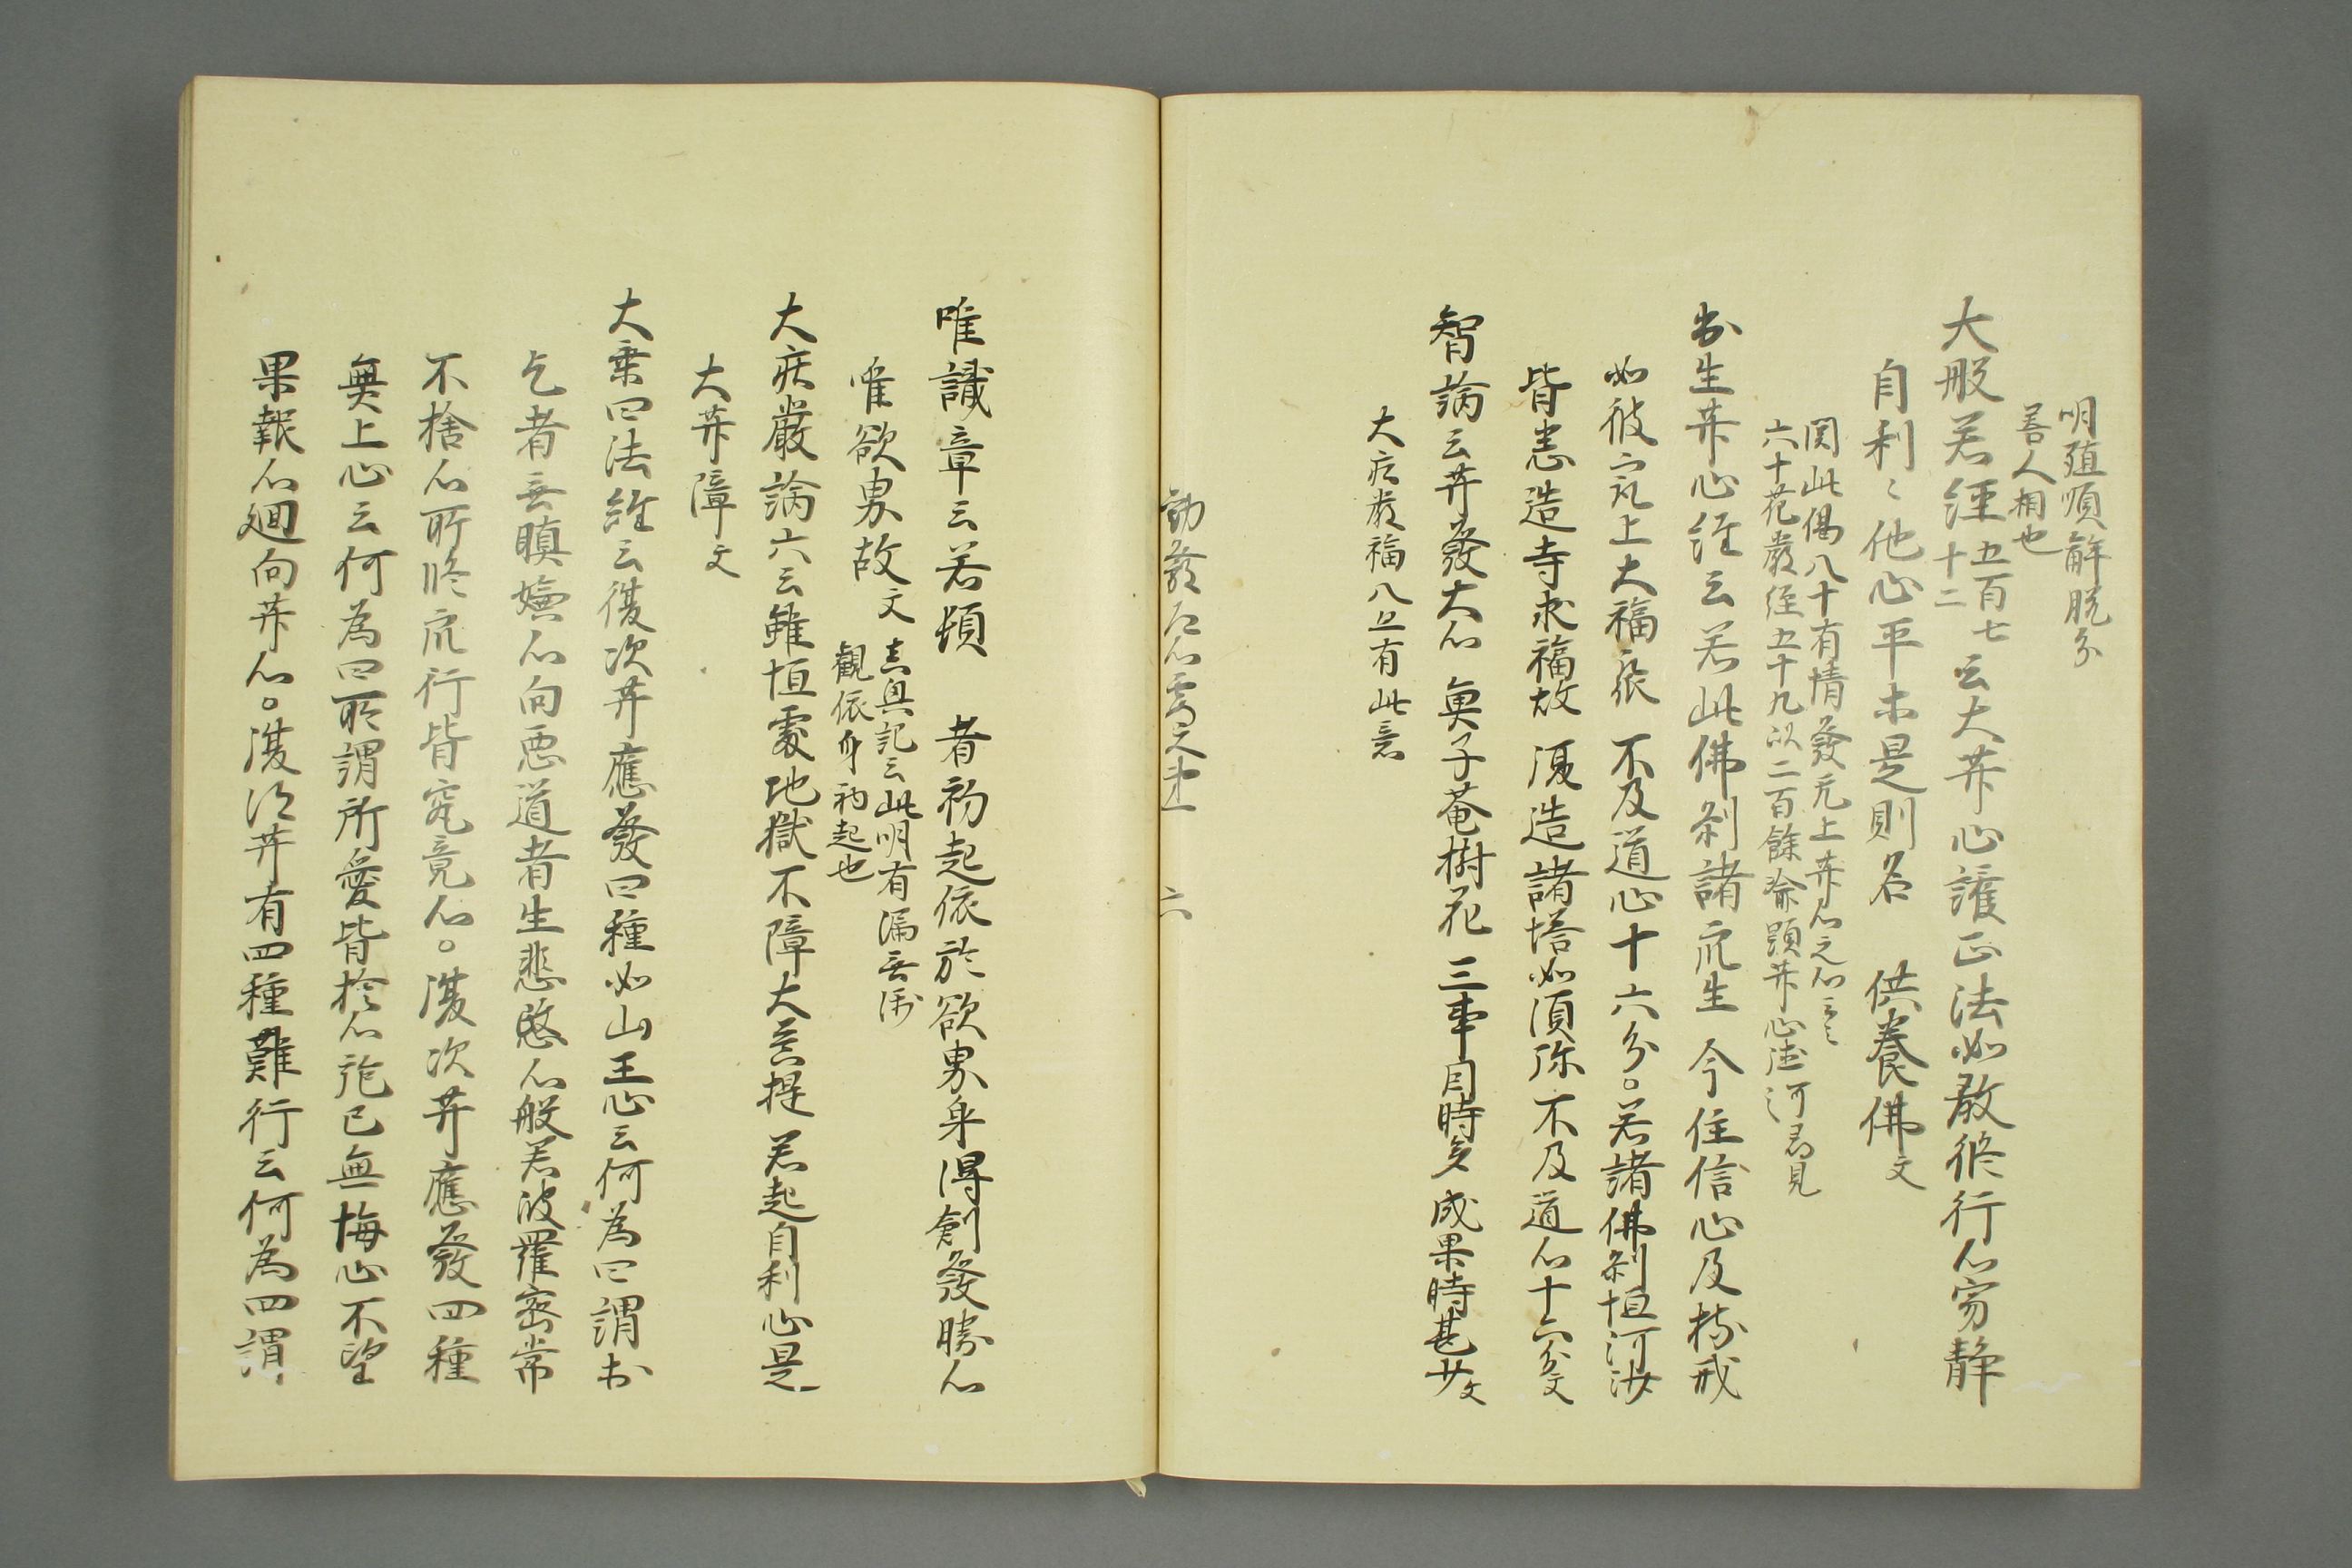 明殖順解脱分
善人相也
大般若經五百七十二云大䒑心護正法如教修行心寂静
自利〻他心平等是則名 供養佛文
関此偈八十有情發无上䒑心之心云〻
六十花嚴經五十九以二百餘喩顕䒑心德〻可尋見
出生䒑心經云若此佛刹諸衆生 今住信心及持戒
如彼衆上大福聚 不及道心十六分。若諸佛刹恒河沙
皆悉造寺求福故 復造諸塔如須弥 不及道心十六分文
智論云䒑發大心 魚子菴樹花 三事因時多 成果時甚少文
大庄嚴福八五有此意
勧發 六
唯識章云若頓 者初起依於欲界身得創發勝心
唯欲界故文
此明有漏無漏
觀依身初起也
大庄嚴論六云雖恒處地獄不障大菩提 若起自利心是
大䒑障文
大乗四法經云復次䒑應發四種如山王心云何為四謂於
乞者無瞋嫌心向悪道者生悲愍心般若波羅密常
不捨心所修衆行皆究竟心。復次䒑應發四種
無上心云何為四所謂所愛皆捨心施已無悔心不望
果報心廻向䒑心。復次䒑有四種難行云何為四謂